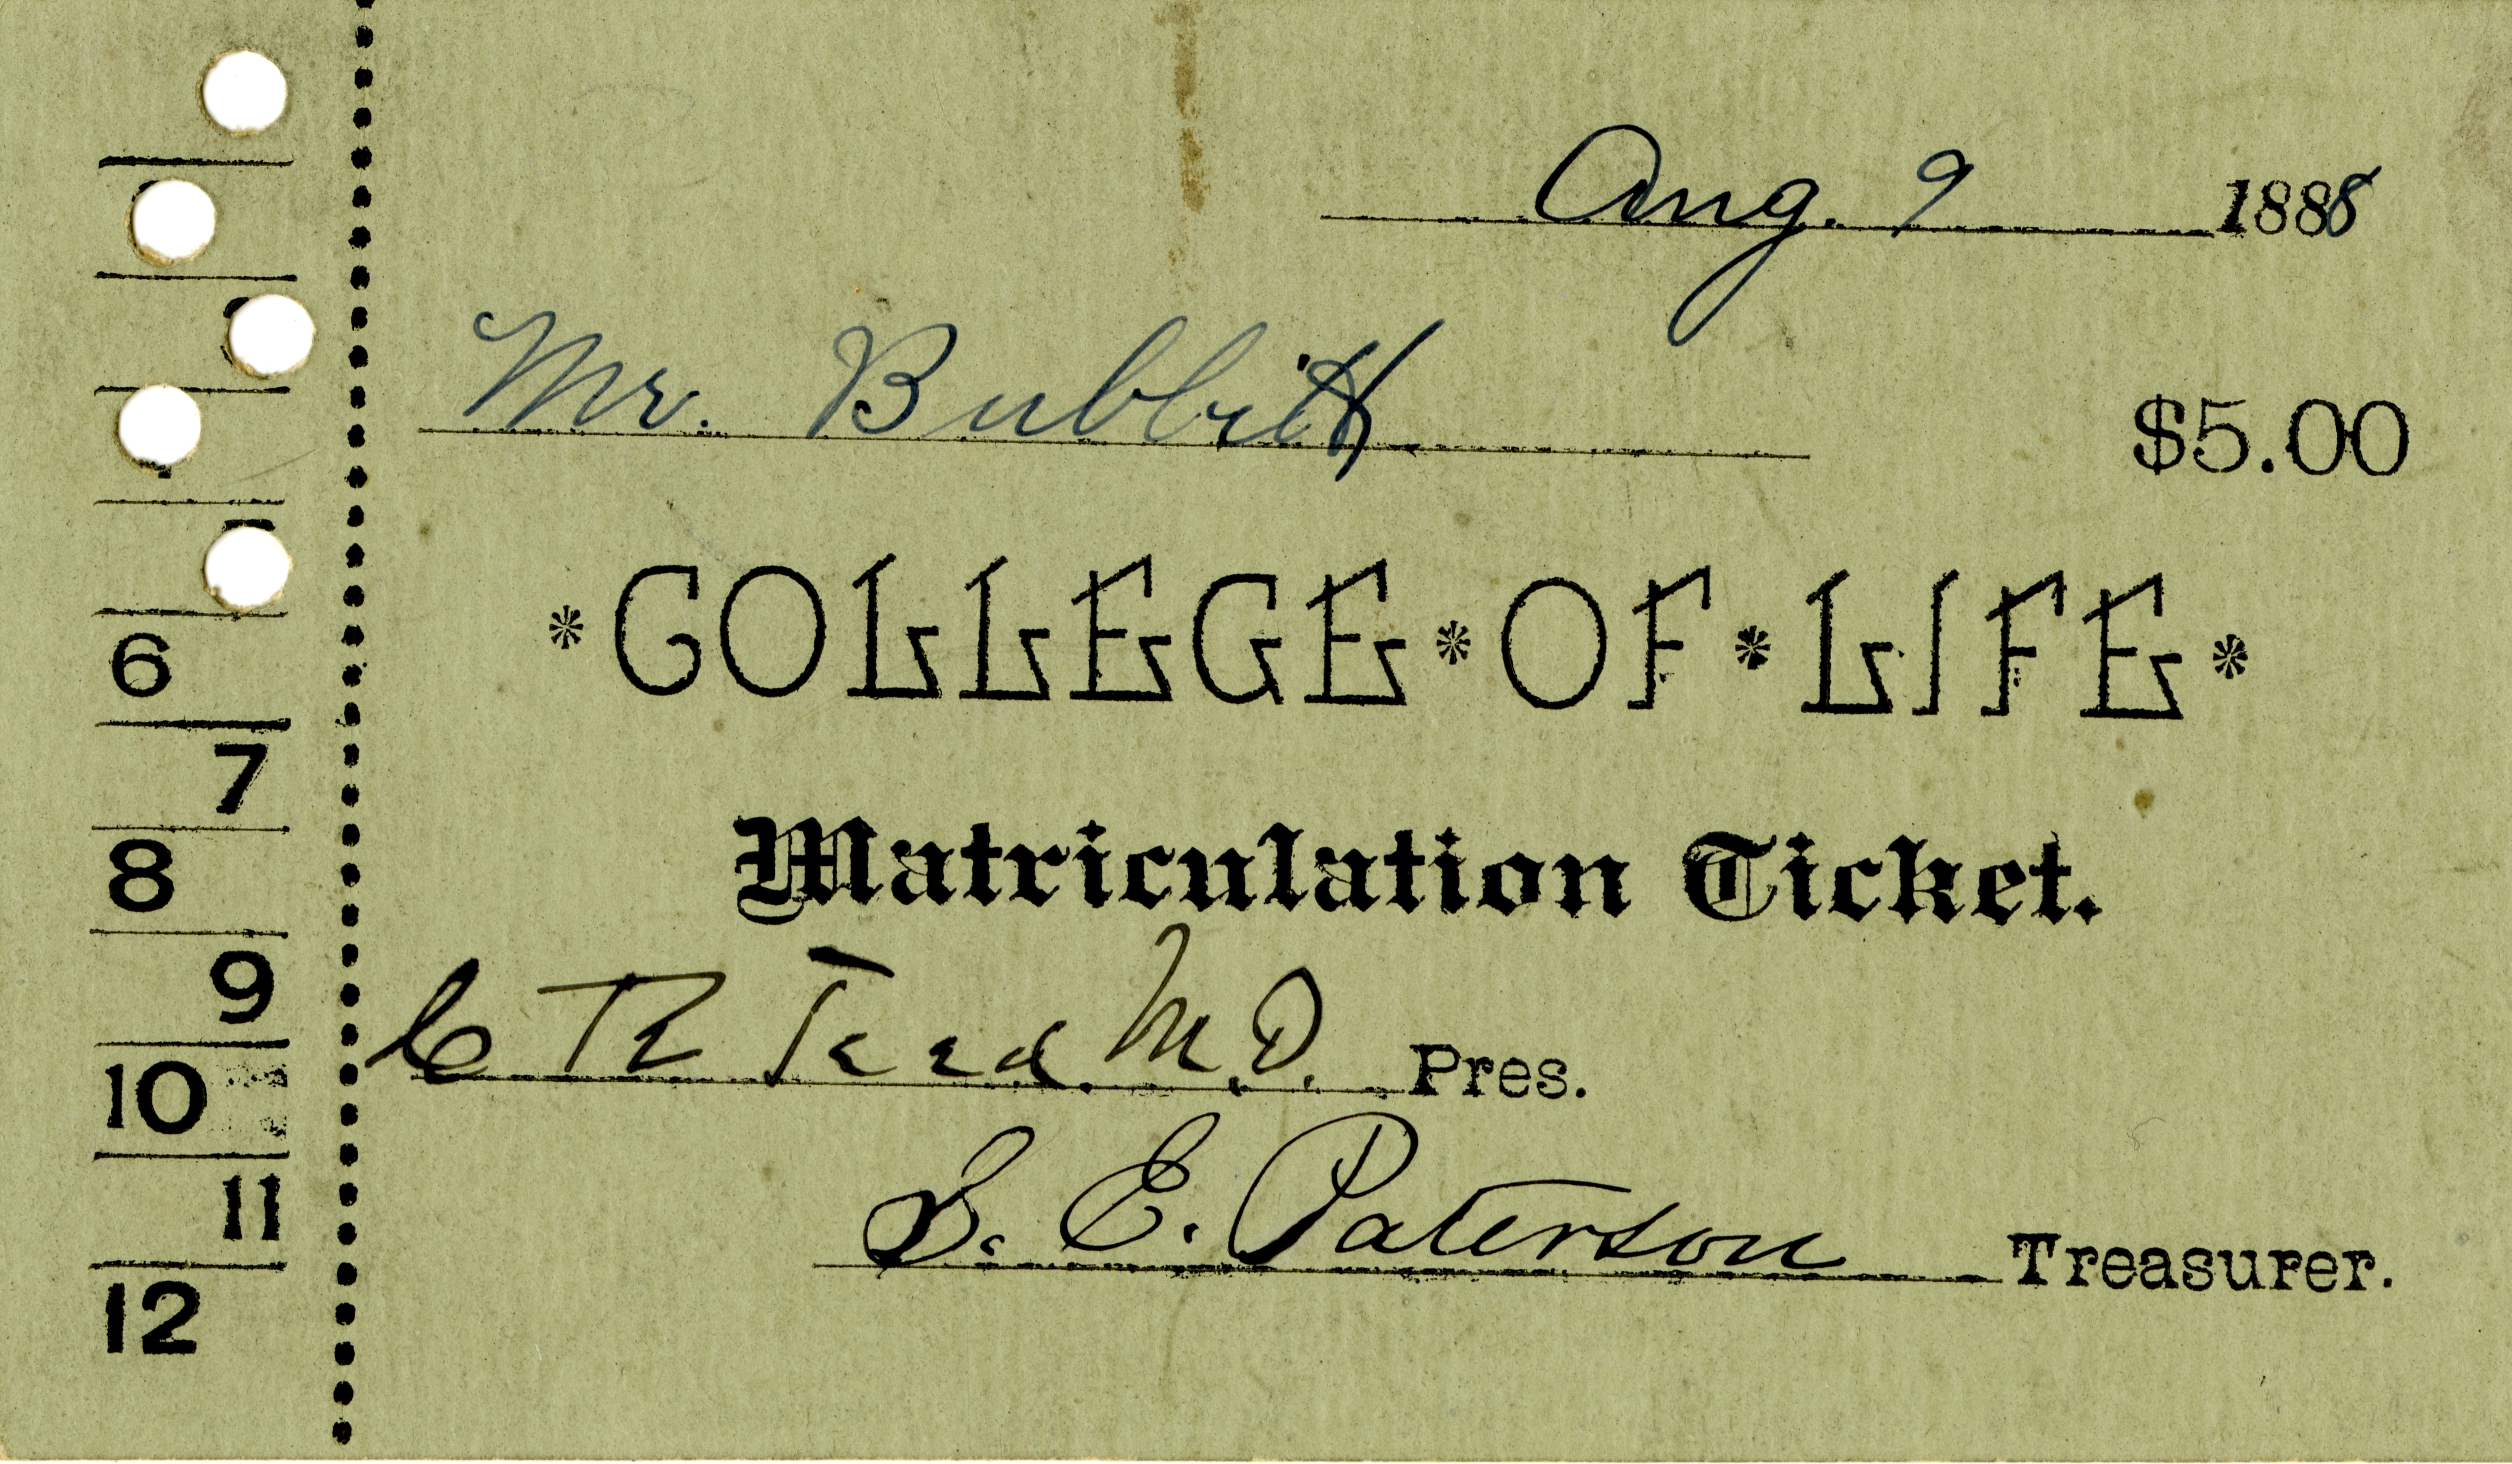 Aug. 9 1888
Mr. Bubbitt
$5.00
*COLLEGE*OF*LIFE*
Matriculation Ticket.
C R Teed. M.D. Pres.
S. E. Paterson Treasurer.
6
7
8
9
10
11
12